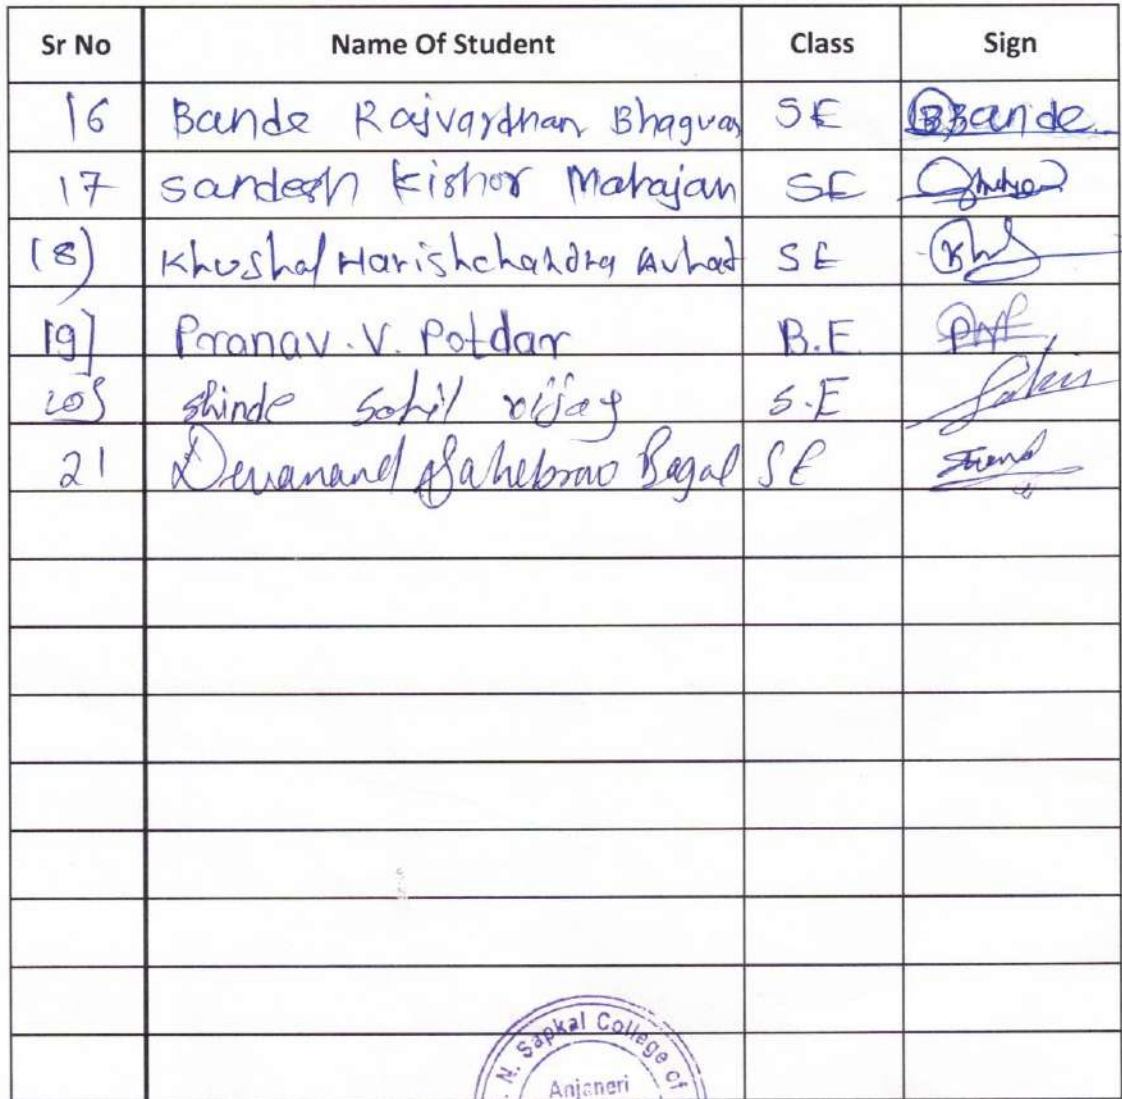 Sr No Name Of Student Class Sign
16 Bande Rajvardhan Bhagvan SE BBande
17 Sandesh Kishor Mahajan SE
18) Khushal Harishchandra Avhad SE
19] Pranav.V. Potdar B.E
20] Shinde Sohil vijay S.E
21 Devanand Sahebrao Bagal SE
N. Sapkal College of
Anjaneri